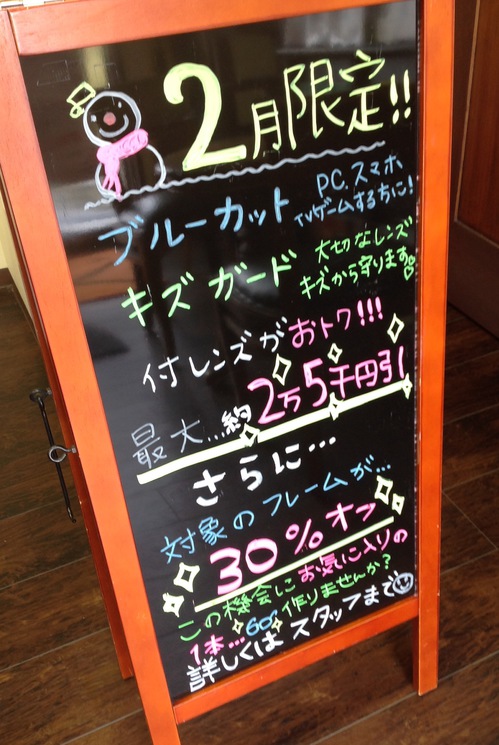 2月限定!!
ブルーカット PC,スマホ
TVゲームする方に!
キズガード 大切なレンズ
キズから守ります。
付レンズがおトク!!!
最大…約2万5千円引
さらに…
対象のフレームが…
30%オフ
この機会にお気に入りの
1本…作りませんか?
詳しくはスタッフまで